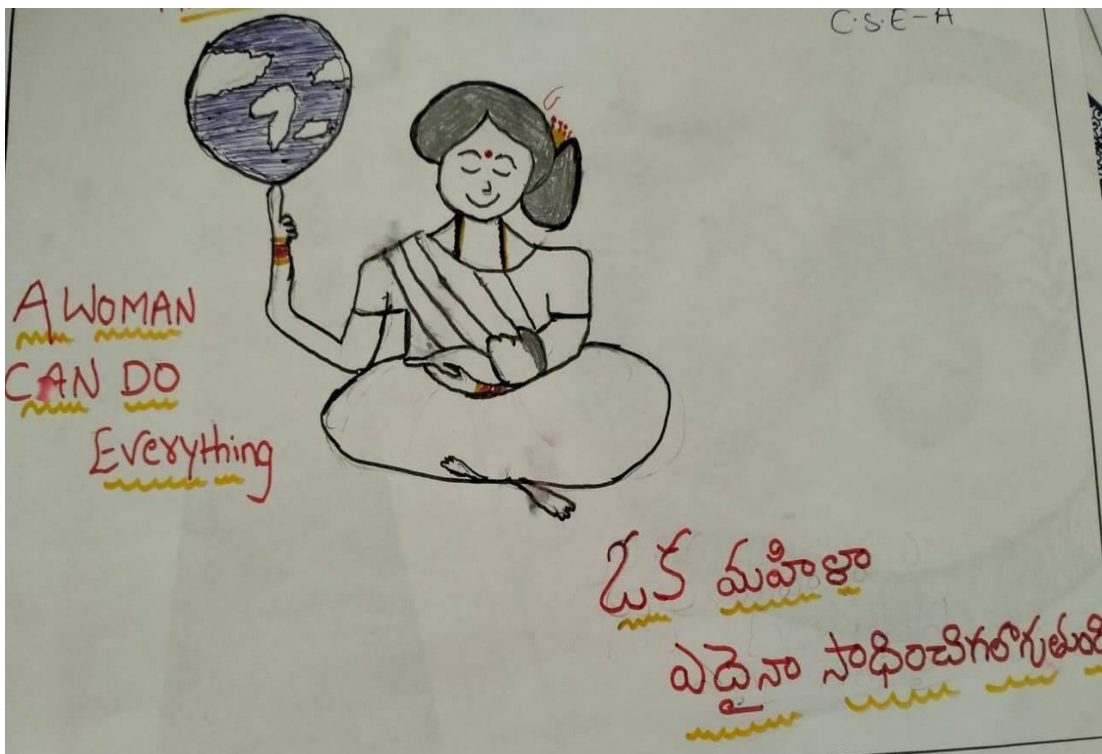 C.S.E-A
A WOMAN
CAN DO
Everything
ఓక మహిళా
ఎదైనా సాధించిగలొగ్గుతుంది